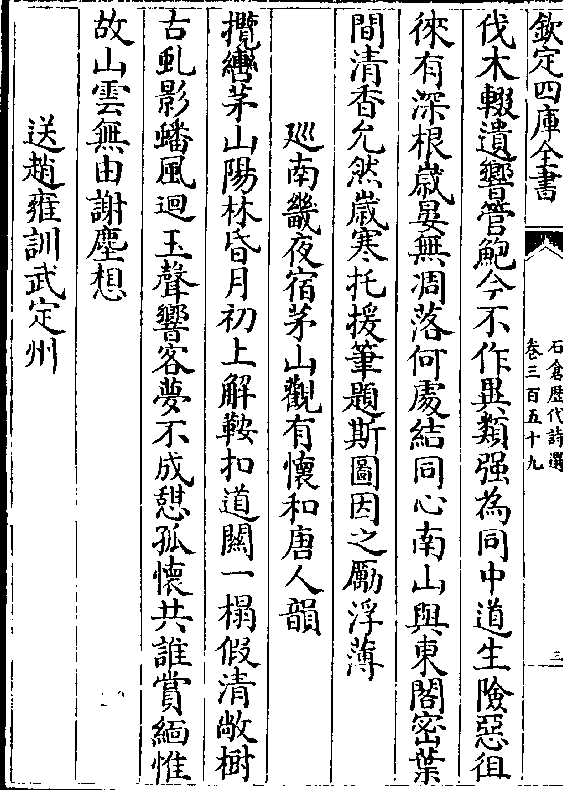 欽定四庫全書
石倉歴代詩選
卷三百五十九
三
伐木輟遺響管鮑今不作異類强為同中道生險惡徂
徠有深根歳晏無凋落何處結同心南山與東閣密葉
間清香允然歳寒托援筆題斯圖因之勵浮薄
廵南畿夜宿茅山觀有懷和唐人韻
攬轡茅山陽林昏月初上解鞍扣道闗一榻假清敞樹
古虬影蟠風迴玉聲響客夢不成憇孤懷共誰賞緬惟
故山雲無由謝塵想
送趙雍訓武定州